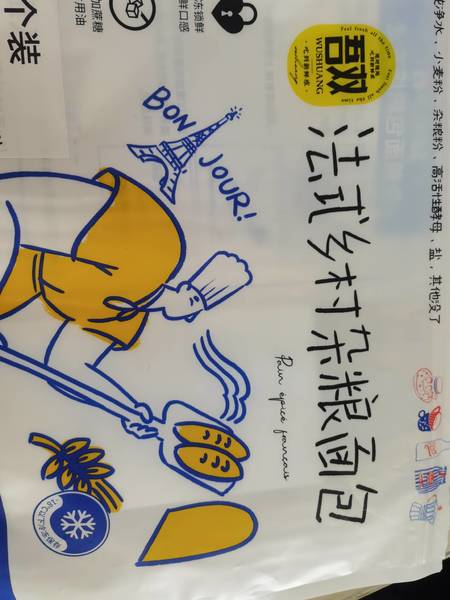 净水、小麦粉、杂粮粉、高活性酵母、盐，其他没了
Feel fresh all the time
吾双
WUSHUANG
法式乡村杂粮面包
Pain épice francais
冻锁鲜
鲜口感
加蔗糖
用油
个装
BON
JOUR!
-18℃以下